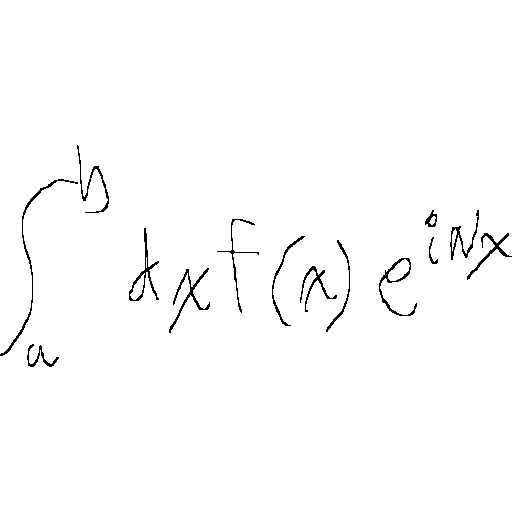 ∫_a^b dx f(x) e^{iNx}